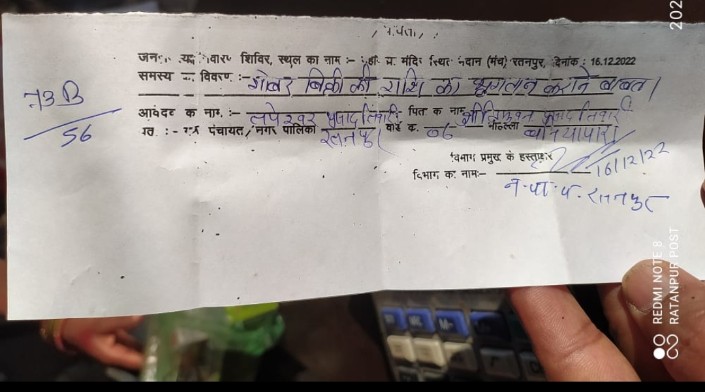 जन समस्या निवारण शिविर, स्थल का नाम :- मंदिर स्थित मैदान (मंच) रतनपुर, दिनांक : 16.12.2022
समस्या का विवरण :- गोबर बिक्री की राशि का भुगतान कराने बाबत।
आवेदक का नाम :- तपेश्वर प्रसाद तिवारी पिता का नाम
पंचायत/नगर पालिका रतनपुर वार्ड क्र. 08 मोहल्ला
73B
56
विभाग प्रमुख के हस्ताक्षर
16/12/22
विभाग का नाम:- न.पा.प. रतनपुर
REDMI NOTE 8
RATANPUR POST
202